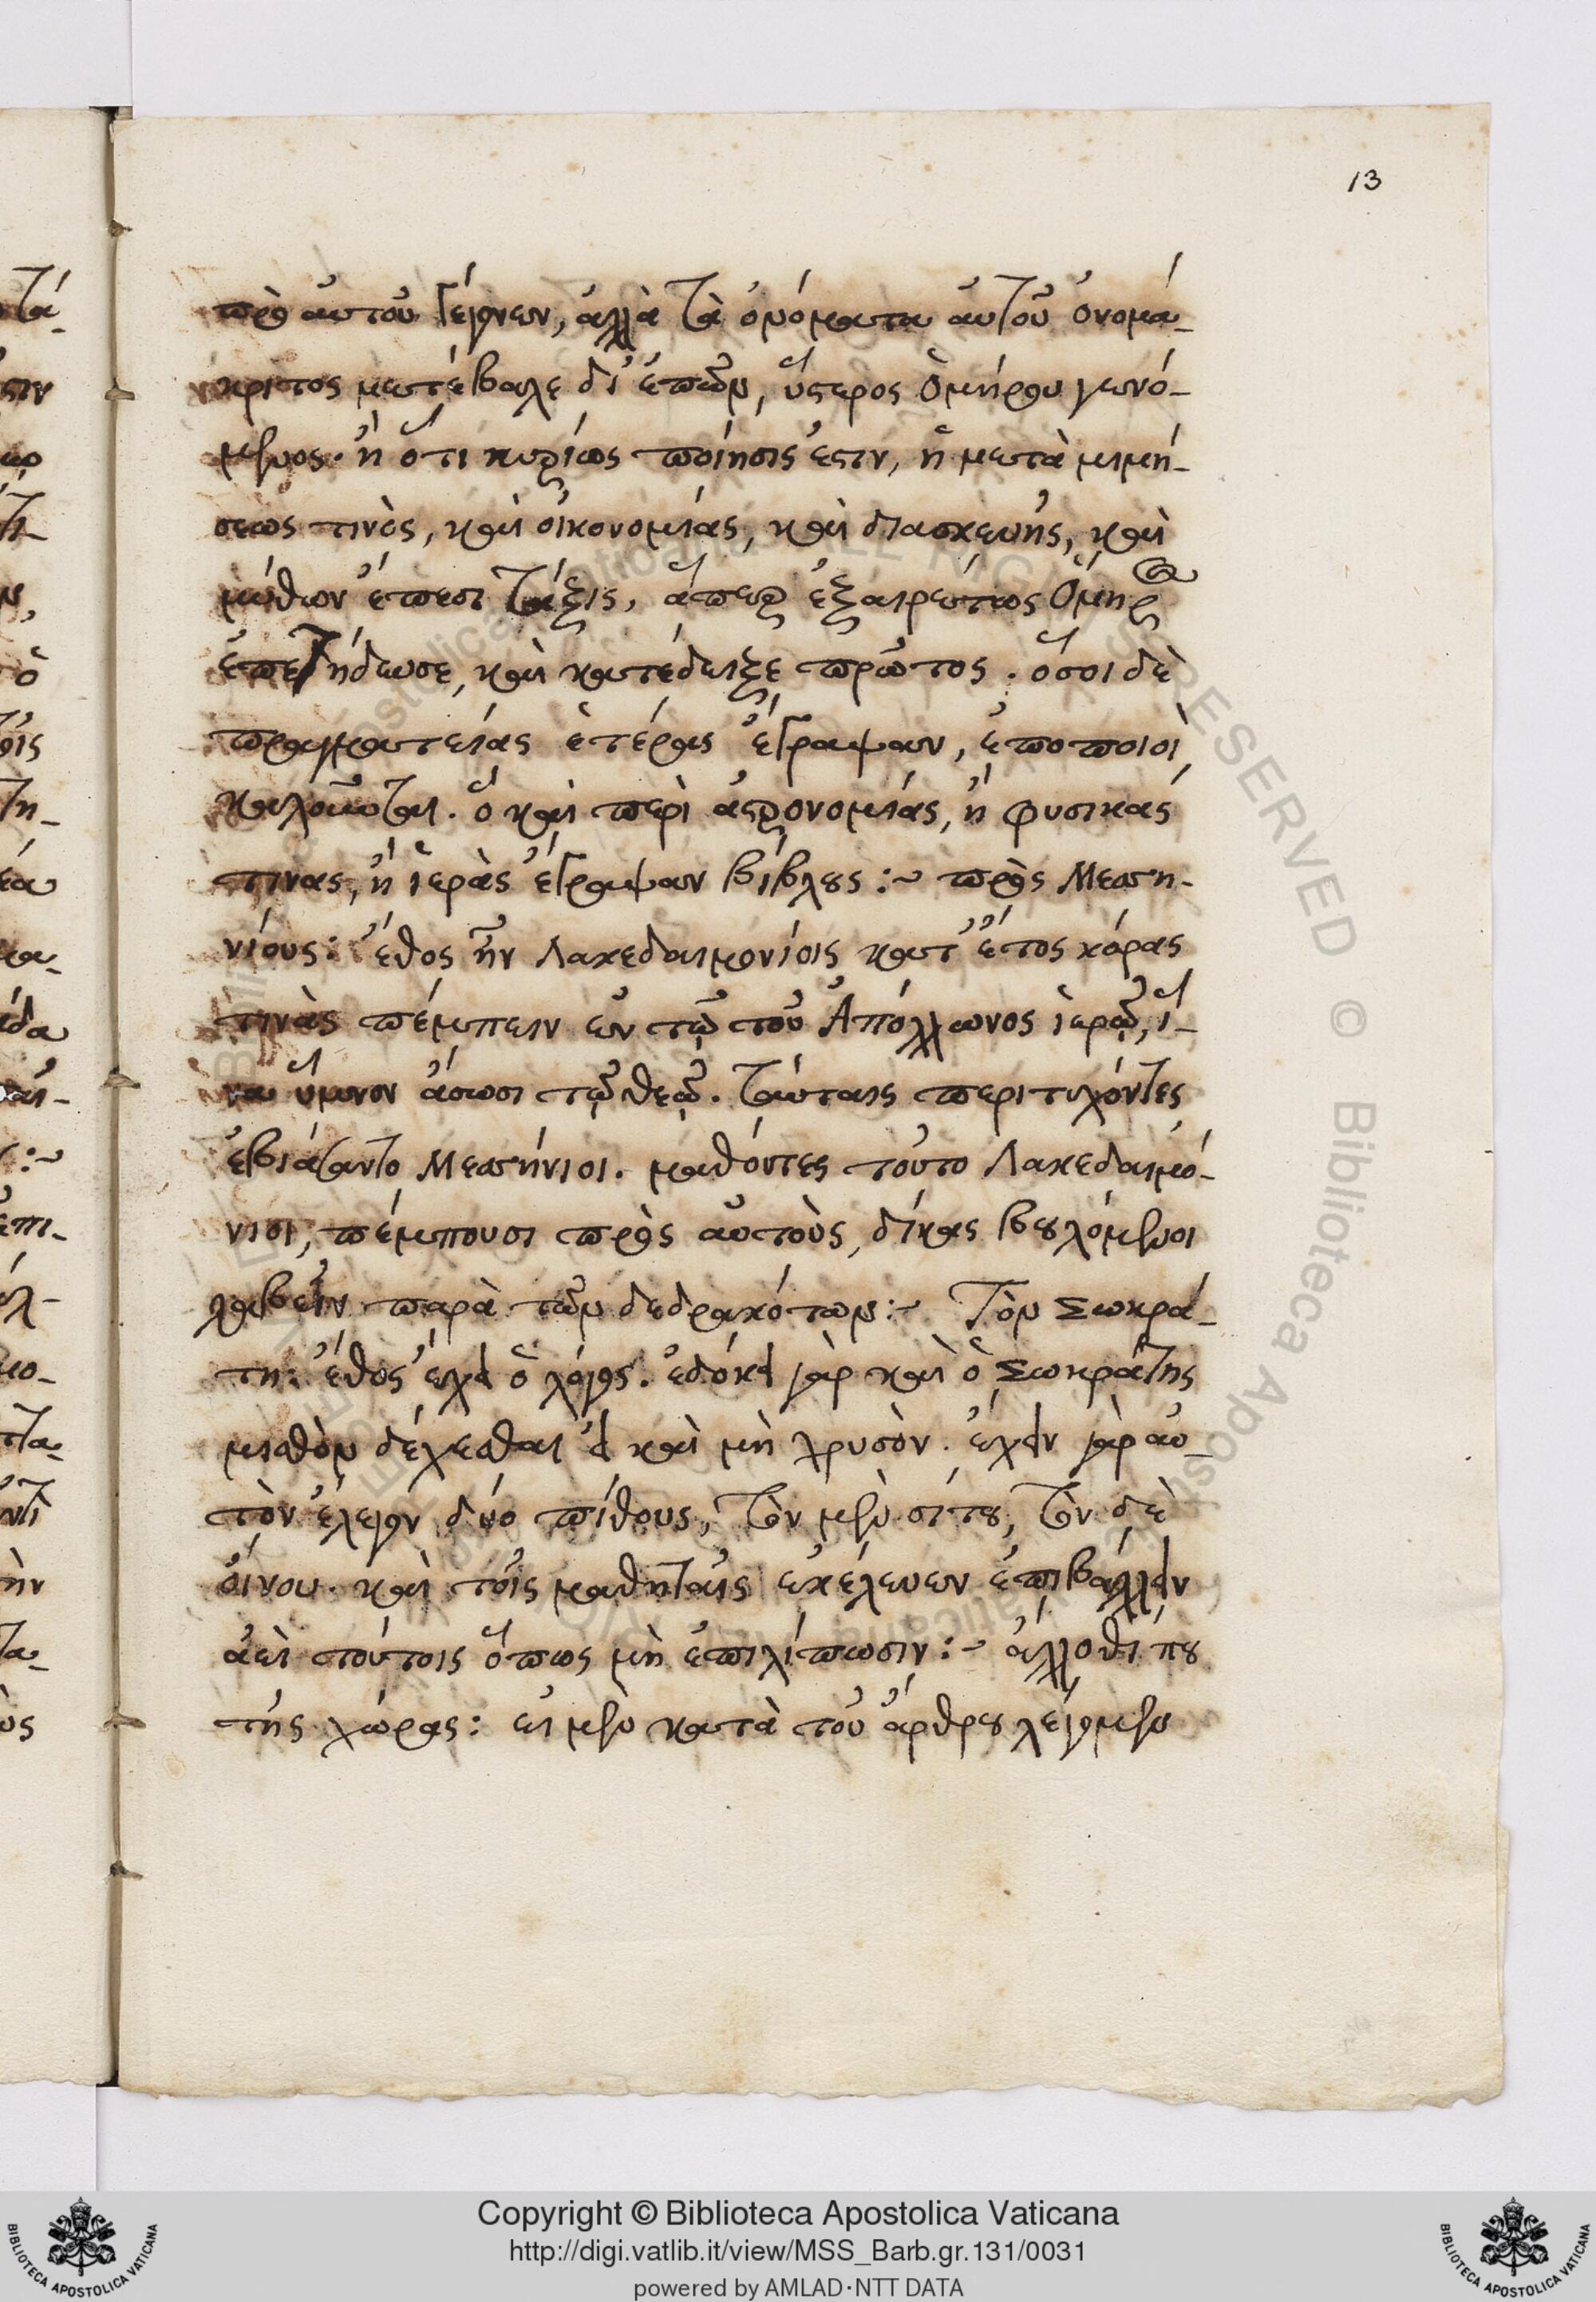 13
πρὸ αὐτοῦ γέγονεν, ἀλλὰ τὰ ὀνόματα αὐτοῦ ὀνομά-
κριτος μετέβαλε δι' ἐπῶν, ὕστερος Ὁμήρου γενό-
μενος. ἢ ὅτι κυρίως ποίησίς ἐστιν, ἡ μετὰ μιμή-
σεως τινὸς, καὶ οἰκονομίας, καὶ διασκευῆς, καὶ
μύθων ἔπεσι τάξις, ἅπερ ἐξαιρέτως Ὅμηρος
ἐπετήδευσε, καὶ κατέδειξε πρῶτος. ὅσοι δὲ
πραγματείας ἑτέρας ἔγραψαν, ἐποποιοὶ
καλοῦνται. ὃ καὶ περὶ ἀστρονομίας, ἢ φυσικάς
τινας, ἢ ἱερὰς ἔγραψαν βίβλους :~ πρὸς Μεσση-
νίους: ἔθος ἦν Λακεδαιμονίοις κατ' ἔτος κόρας
τινὰς πέμπειν ἐν τῷ τοῦ Ἀπόλλωνος ἱερῷ, ἵ-
να ὕμνον ἄσωσι τῷ θεῷ. ταύταις περιτυχόντες
ἐβιάσαντο Μεσσήνιοι. μαθόντες τοῦτο Λακεδαιμό-
νιοι, πέμπουσι πρὸς αὐτοὺς, δίκας βουλόμενοι
λαβεῖν παρὰ τῶν δεδρακότων :~ Τὸν Σωκρά-
τη: ἔθος ἔχει ὁ λόγος. ἐδόκει γὰρ καὶ ὁ Σωκράτης
μισθὸν δέχεσθαι εἰ καὶ μὴ χρυσὸν. ἔχειν γὰρ αὐ-
τὸν ἔλεγον δύο πίθους, τὸν μὲν σίτου, τὸν δὲ
οἴνου. καὶ τοῖς μαθηταῖς ἐκέλευεν ἐπιβάλλειν
ἀεὶ τούτοις ὅπως μὴ ἐπιλίπωσιν :~ ἄλλοθί που
τῆς χώρας: εἰ μὲν κατὰ τοῦ ἄρθρου λέγομεν
Copyright © Biblioteca Apostolica Vaticana
http://digi.vatlib.it/view/MSS_Barb.gr.131/0031
powered by AMLAD·NTT DATA